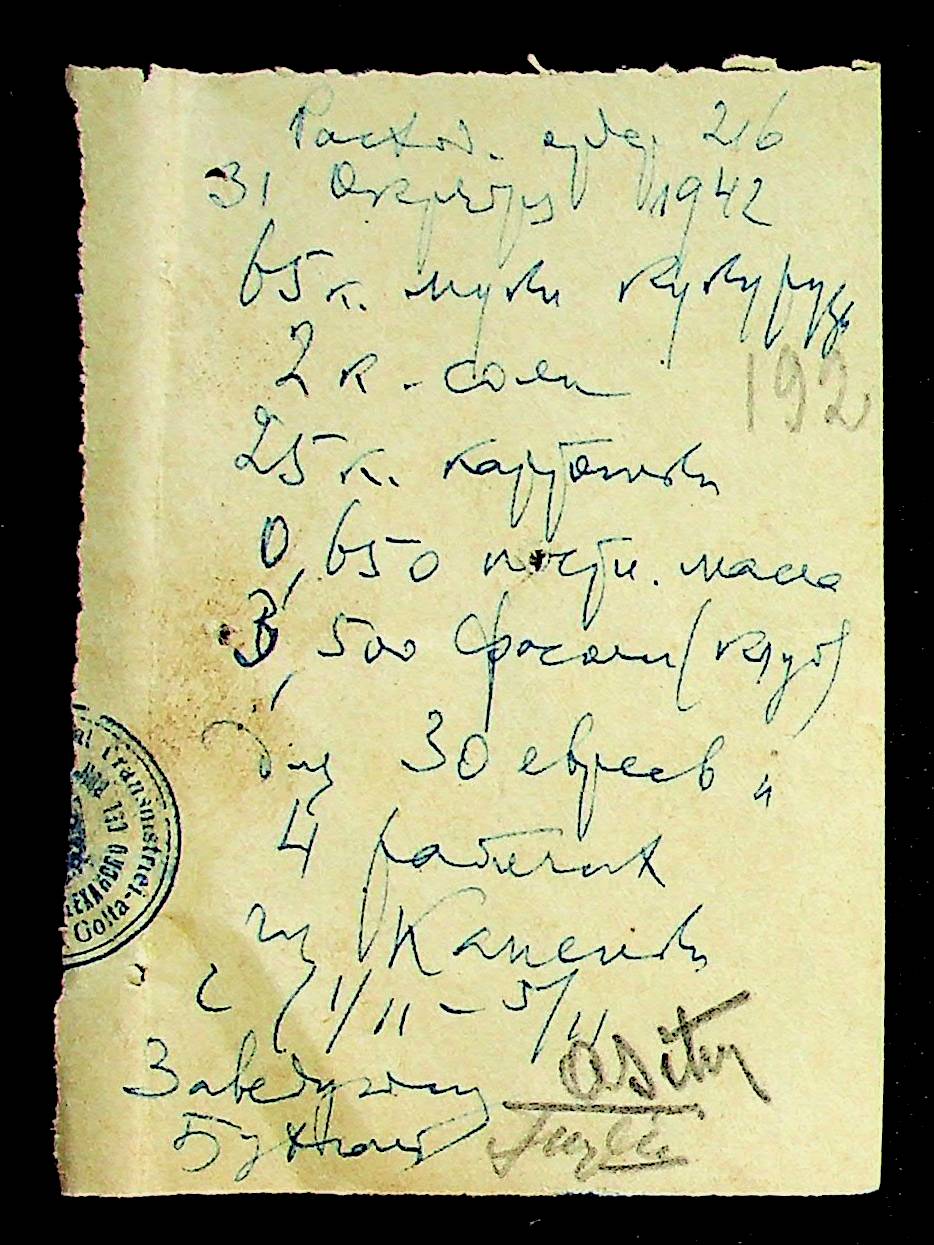 Расход. ордер 216
31 Октября 1942
65 к. муки кукуруз.
2 к. соли
25 к. картошки
0,650 постн. масла
3,500 фасоли (клуб)
для 30 евреев и
4 рабочих
из Каменки
с 1/11 - 5/11
Заведующий
Кухней
192
Transnistriei
Golta